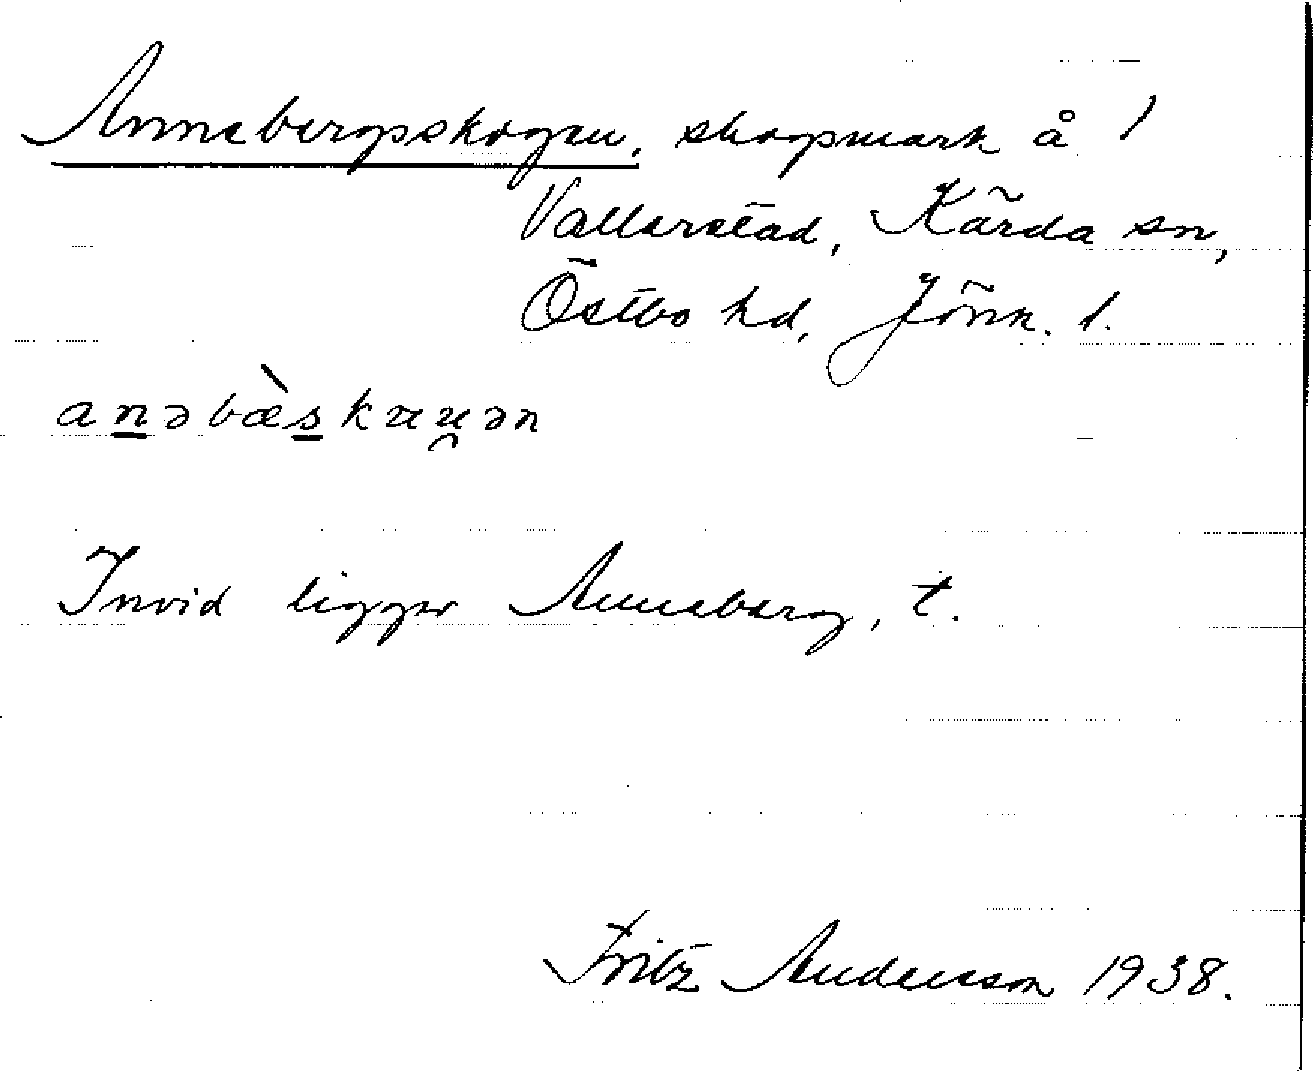 Annebergskogen, skogsmark å 1
Vallerstad, Kärda sn,
Östbo hd, Jönk. l.
anəbæ̀skɯɯ̯ən
Invid ligger Anneberg, t.
Fritz Andersson 1938.